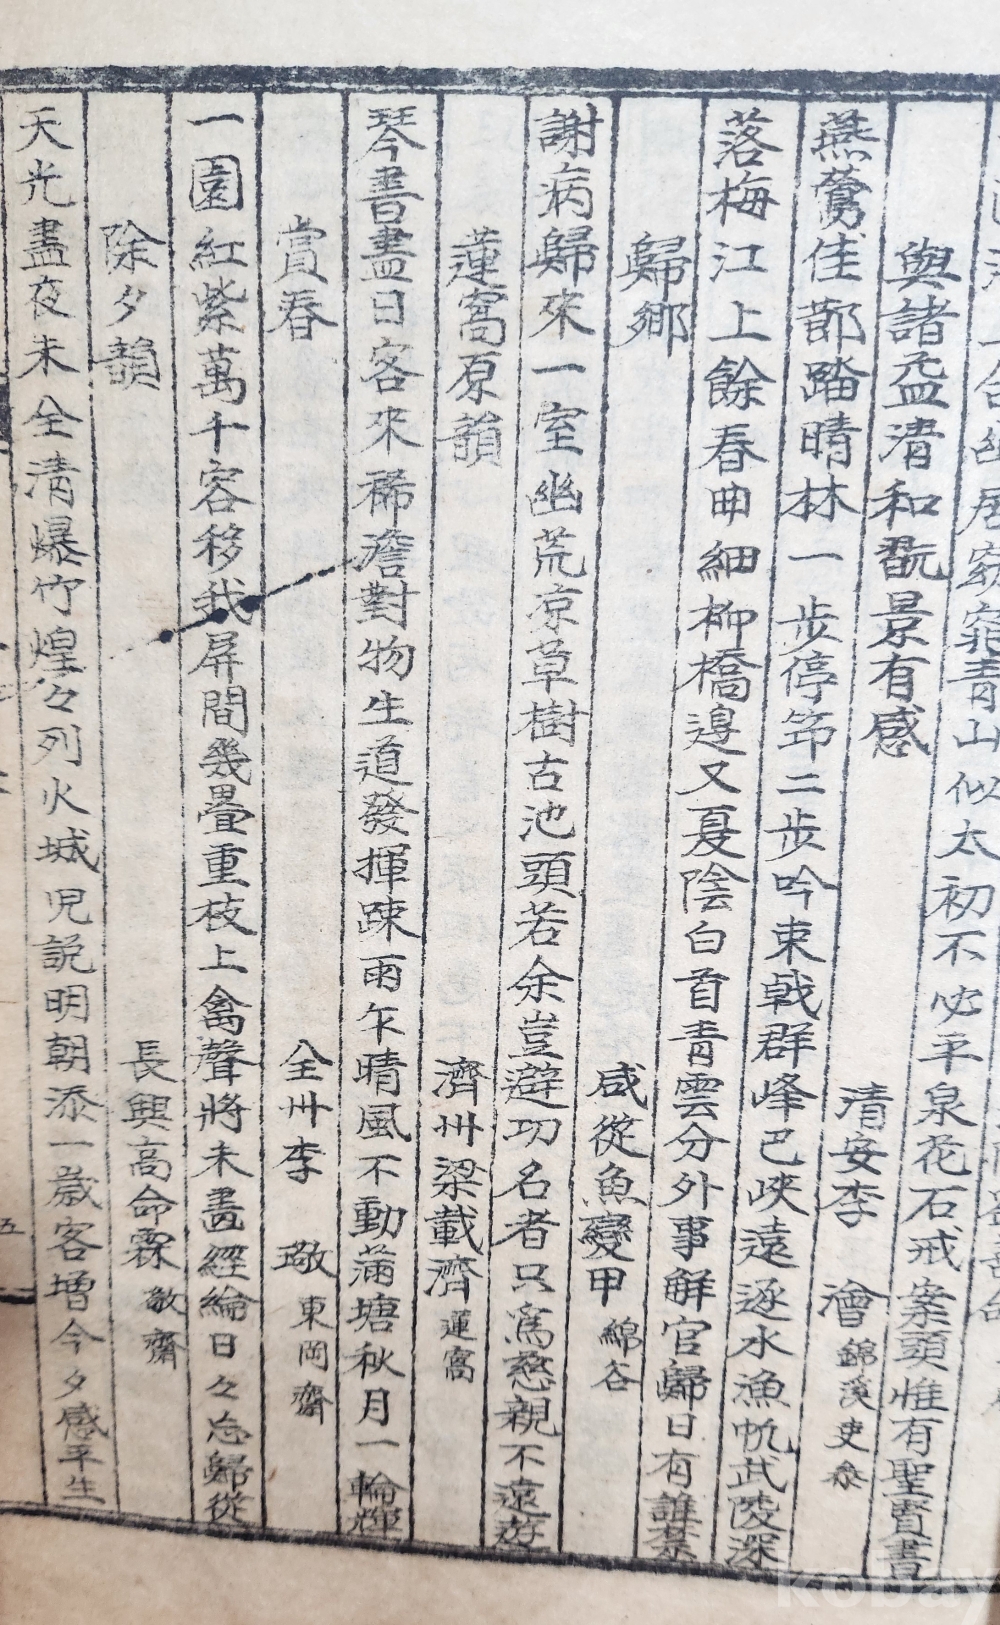 幽居窈窕靑山似太初不必平泉花石戒案頭惟有聖賢書
與諸益淸和翫景有感 淸安李 澮 錦溪吏叅
燕鶯佳節踏晴林一步停笻二步吟東戟群峰巴峽遠逐水漁帆武陵深
落梅江上餘春曲細柳橋邊又夏陰白首靑雲分外事解官歸日有誰禁
歸鄕 咸從魚變甲 綿谷
謝病歸來一室幽荒凉草樹古池頭若余豈避功名者只爲慈親不遠遊
蓮窩原韻 濟州梁載濟 蓮窩
琴書盡日客來稀澹對物生道發揮踈雨乍晴風不動滿塘秋月一輪輝
賞春 全州李 璥 東岡齋
一園紅紫萬千客移我屛間幾疊重枝上禽聲將未畵經綸日々忘歸從
除夕韻 長興高命霖 敬齋
天光盡夜未全淸爆竹煌々列火城児説明朝添一歲客增今夕感平生
五
kobay